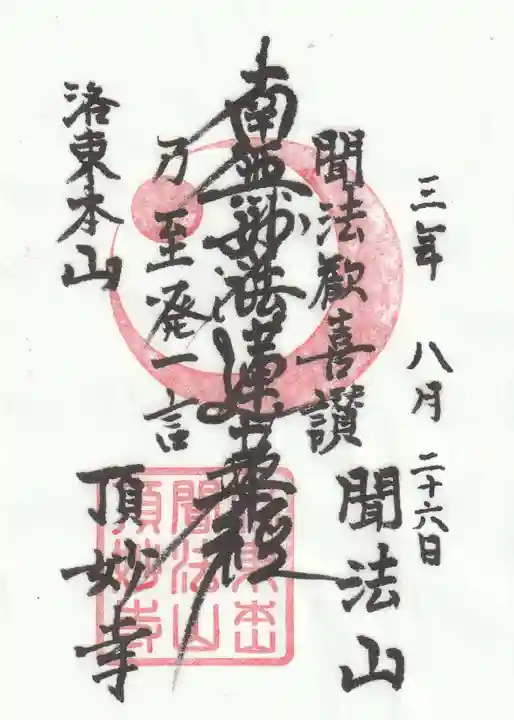 三年 八月 二十六日
聞法山
聞法歓喜讃
南無妙法蓮華経
乃至発一言
洛東本山
頂妙寺
洛東本山
聞法山
頂妙寺